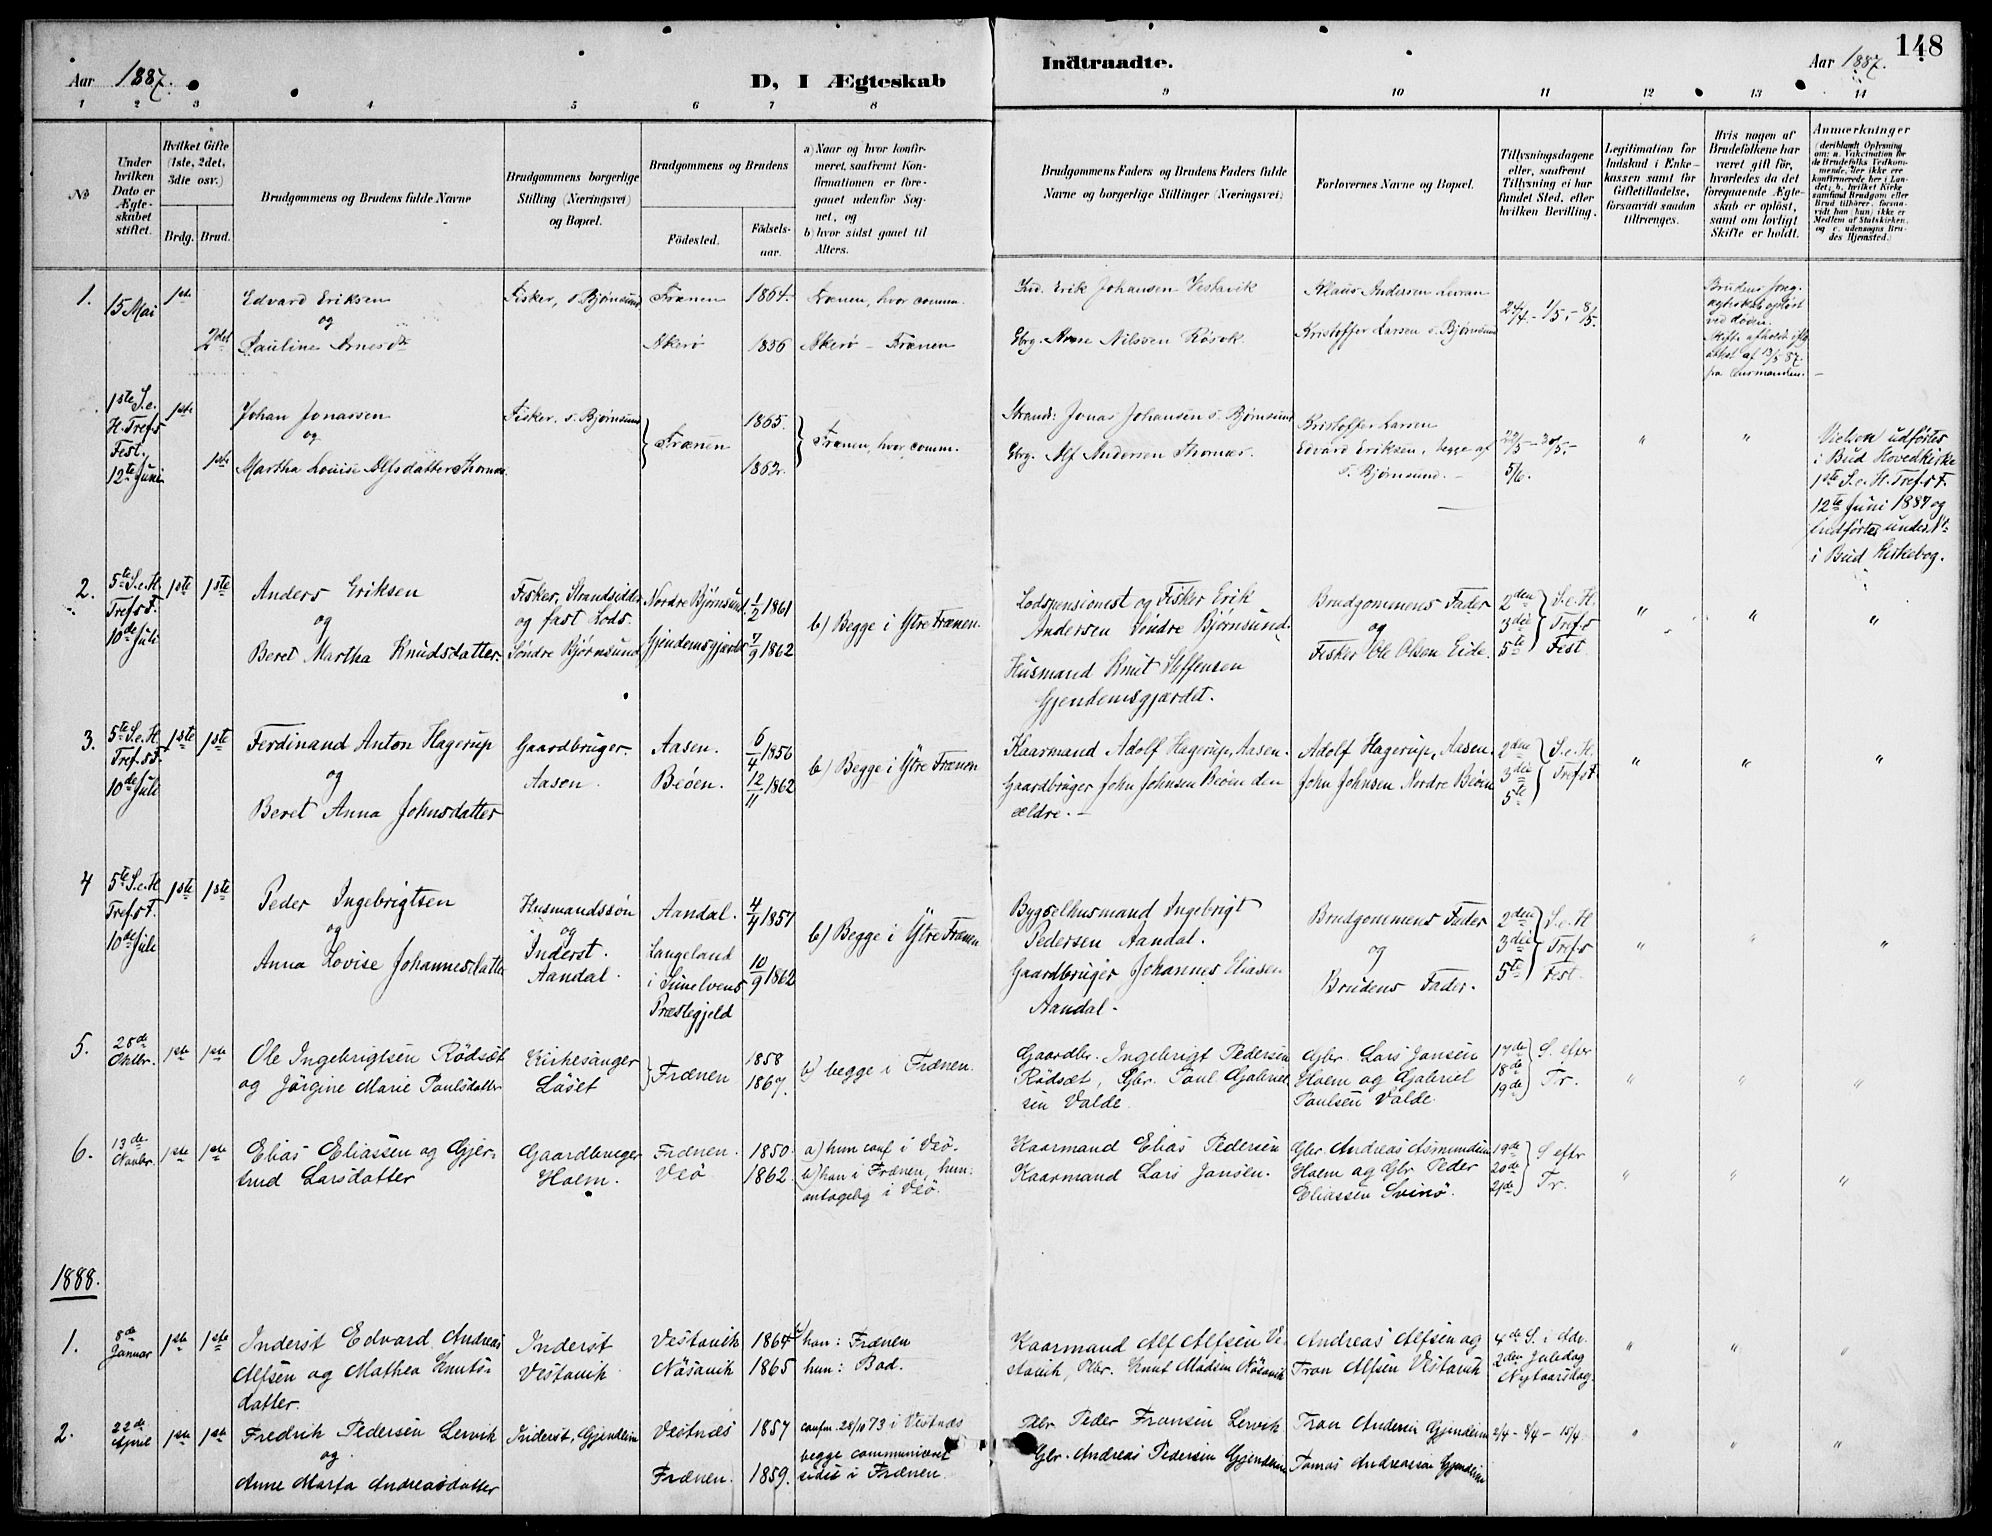 148
Aar 1887.
D, I Ægteskab
Indtraadte.
Aar 1887.
1 2 3 4 5 6 7 8 9 10 11 12 13 14
№
Under hvilken Dato er Ægteskabet stiftet.
Hvilket Gifte (1ste, 2det, 3die osv.)
Brdg. Brud.
Brudgommens og Brudens fulde Navne
Brudgommens borgerlige Stilling (Næringsvei) og Bopæl.
Brudgommens og Brudens
Födested.
Födselsaar.
a) Naar og hvor konfirmeret, saafremt Konfirmationen er foregaaet udenfor Sognet, og
b) hvor sidst gaaet til Alters.
Brudgommens Faders og Brudens Faders fulde Navne og borgerlige Stillinger (Næringsvei)
Forlovernes Navne og Bopæl.
Tillysningsdagene eller, saafremt Tillysning ei har fundet Sted, efter hvilken Bevilling.
Legitimation for Indskud i Enkekassen samt for Giftetilladelse, forsaavidt saadan tiltrænges.
Hvis nogen af Brudefolkene har været gift för, hvorledes da det foregaaende Ægteskab er oplöst, samt om lovligt Skifte er holdt.
Anmærkninger (deriblandt Oplysning om: a. Vakcination for de Brudefolks Vedkommende, der ikke ere konfirmerede her i Landet; b. hvilket Kirkesamfund Brudgom eller Brud tilhörer, forsaavidt han (hun) ikke er Medlem af Statskirken, og c. udensogns Brudes Hjemsted.)
1.
15 Mai
1ste
2det
Edvard Eriksen
og
Pauline Arnesdtr
Fisker, s. Bjørnsund
Frænen
Akerö
1864.
1836
Frænen, hvor comm.
Akerö - Frænen
Erik Johansen Vestavik
Gbrg. Arne Nilssen Rösok
Klaus Andersen Leiran
Kristoffer Larsen s. Bjørnsund
24/4 - 1/5 - 8/5.
Brudens forrige
ægteskab opløst
ved döden.
Skifte afholdt iflg
attest af 13/5 87.
fra Lensmanden.
1ste S. e.
H. Tref.s
Fest.
12te Juni
1ste
1ste
Johan Jonassen
og
Martha Louise Alfsdatter Thornæs
Fisker. s. Bjørnsund
Frænen
1865.
1862.
Frænen, hvor comm.
Strands: Jonas Johansen s. Bjørnsund
Gbrg. Alf Andersen Thornæs.
Kristoffer Larsen
Edvard Eriksen, begge af
s. Bjørnsund.
22/5 - 30/5 -
5/6.
" "
Vielsen udførtes
i Bud Hovedkirke
1ste S. e. H. Tref.s F.
12te Juni 1887 og
indførtes under №
i Bud Kirkebog.
2.
5te S. e. H.
Tref.s F.
10de Juli
1ste 1ste
Anders Eriksen
og
Beret Martha Knudsdatter.
Fisker, Strandsidder
og fast Lods.
Söndre Bjørnsund
Nordre Bjørnsund
Gjendemsgjærdet
1/2 1861
7/9 1862
b) Begge i Ytre Frænen.
Lodspensionist og Fisker Erik
Andersen Söndre Bjørnsund.
Husmand Knut Steffensen
Gjendemsgjærdet.
Brudgommens Fader
og
Fisker Ole Olsen Eide.
2den
3die
5te
S. e. H.
Tref.s
Fest
" " "
3.
5te S. e. H.
Tref.s F.
10de Juli
1ste 1ste
Ferdinand Anton Hagerup
og
Beret Anna Johnsdatter
Gaardbruger
Aasen.
Aasen.
Beöen.
6/4 1856
12/11 1862
b) Begge i Ytre Frænen
Kaarmand Adolf Hagerup, Aasen.
Gaardbruger John Johnsen Beöen den
ældre. -
Adolf Hagerup, Aasen.
John Johnsen Nordre Beöen
2den
3die
5te
S. e. H.
Tref.s F.
" " "
4
5te S. e. H
Tref.s F.
10de Juli
1ste 1ste
Peder Ingebrigtsen
og
Anna Lovise Johannesdatter
Husmandssön
og
Inderst.
Aandal.
Aandal.
Langeland
i Sunelvens
Præstegjeld
4/9 1857
10/9 1862
b) Begge i Ytre Frænen
Bygselhusmand Ingebrigt
Pedersen Aandal.
Gaardbruger Johannes Eliasen
Aandal.
Brudgommens Fader
og
Brudens Fader.
2den
3die
5te
S. e. H
Tref.s
Fest.
" " "
5.
28de
Oktbr.
1ste 1ste
Ole Ingebrigtsen Rödsæt
og Jörgine Marie Paulsdatter
Kirkesanger
Löset
Frænen
1858
1867.
b) begge i Frænen.
Gaardbr. Ingebrigt Pedersen
Rödsæt, Gbr. Paul Gabriel
sen Valde.
Gbr. Lars Jansen
Hoem og Gabriel
Paulsen Valde.
17de
18de
19de
S. efter
Tr.
" " "
6.
13de
Novbr.
1ste 1ste
Elias Eliassen og Gjer-
trud Larsdatter
Gaardbruger
Hoem.
Frænen.
Veö
1850.
1862.
a) hun conf i Veö.
b) han i Frænen, hun:
antagelig i Veö.
Kaarmand Elias Pedersen
Kaarmand Lars Jansen.
Gbr Andreas Asmundsen
Hoem og Gbr Peder
Eliassen Svinö.
19de
20de
21de
S efter
Tr.
" " "
1888.
1.
8de
Januar
1ste 1ste
Inderst Edvard Andreas
Alfsen og Mathea Knuts-
datter.
Inderst
Vestavik
Vestavik
Nösavik
1864
1865
han: Frænen
hun: Bod.
Kaarmand Alf Alfsen Ve-
stavik, Knut Madsen Nösavik
Andreas Alfsen og
Tron Alfsen Vestavik
4de S. i Adv.
2den Juledag
Nytaarsdag.
" " "
2.
22de
April
1ste 1ste
Fredrik Pedersen Lervik
og
Anne Marta Andreasdatter
Inderst, Gjendem
Vestnæs
Frænen.
1857
1859.
confm. 28/10 73 i Vestnæs
begge communiceret
sidst i Frænen.
Peder Fransen Lervik
Gbr. Andreas Pedersen Gjendem
Tron Andersen Gjendem
Tomas Andreassen Gjendem
2/4 - 8/4 - 15/4
" " "